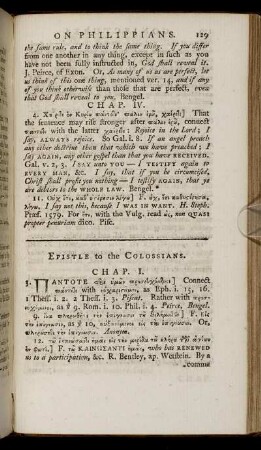 ON PHILIPPIANS. 129
the same rule, and to think the same thing. If you differ
from one another in any thing, except in such as you
have not been fully instructed in, God shall reveal it.
J. Peirce, of Exon. Or, As many of us as are perfect, let
us think of this one thing, mentioned ver. 14, and if any
of you think otherwise than those that are perfect, even
that God shall reveal to you, Bengel.
CHAP. IV.
4. Χαίρετε ἐν Κυρίῳ πάντοτε· πάλιν ἐρῶ, χαίρετε] That
the sentence may rise stronger after πάλιν ἐρῶ, connect
πάντοτε with the latter χαίρετε: Rejoice in the Lord; I
say, ALWAYS rejoice. So Gal. i. 8. If an angel preach
any other doctrine than that which we have preached; I
say AGAIN, any other gospel than that you have RECEIVED.
Gal. v. 2, 3. I SAY unto YOU — I TESTIFY again to
EVERY MAN, &c. I say, that if you be circumcised,
Christ shall profit you nothing — I testify AGAIN, that ye
are debtors to the WHOLE LAW. Bengel.
11. Οὐχ ὅτι, καθ' ὑστέρησιν λέγω] F. οὐχ, ἔτι καθυστέρησιν
λέγω. I say not this, because I WAS IN WANT. H. Steph.
Præf. 1579. For ὅτι, with the Vulg. read ὡς, non QUASI
propter penuriam dico. Pisc.
EPISTLE to the COLOSSIANS.
CHAP. I.
3. ΠΑΝΤΟΤΕ περὶ ὑμῶν προσευχόμενοι] Connect
πάντοτε with εὐχαριστοῦμεν, as Eph. i. 15, 16.
1 Thess. i. 2. 2 Thess. i. 3. Piscat. Rather with προσ-
ευχόμενοι, as ỳ 9. Rom. i. 10. Phil. i. 4. Peirce, Bengel.
9. ἵνα πληρωθῆτε τὴν ἐπίγνωσιν τοῦ θελήματος] F. εἰς
τὴν ἐπίγνωσιν, as ỳ 10, αὐξανόμενοι εἰς τὴν ἐπίγνωσιν. Or,
πληροῦσθε τὴν ἐπίγνωσιν. Anonym.
12. τῷ ἱκανώσαντι ἡμᾶς εἰς τὴν μερίδα τοῦ κλήρου τῶν ἁγίων
ἐν φωτί.] F. τῷ ΚΑΙΝΩΣΑΝΤΙ ἡμᾶς, who has RENEWED
us to a participation, &c. R. Bentley, ap. Wetstein. By a
common